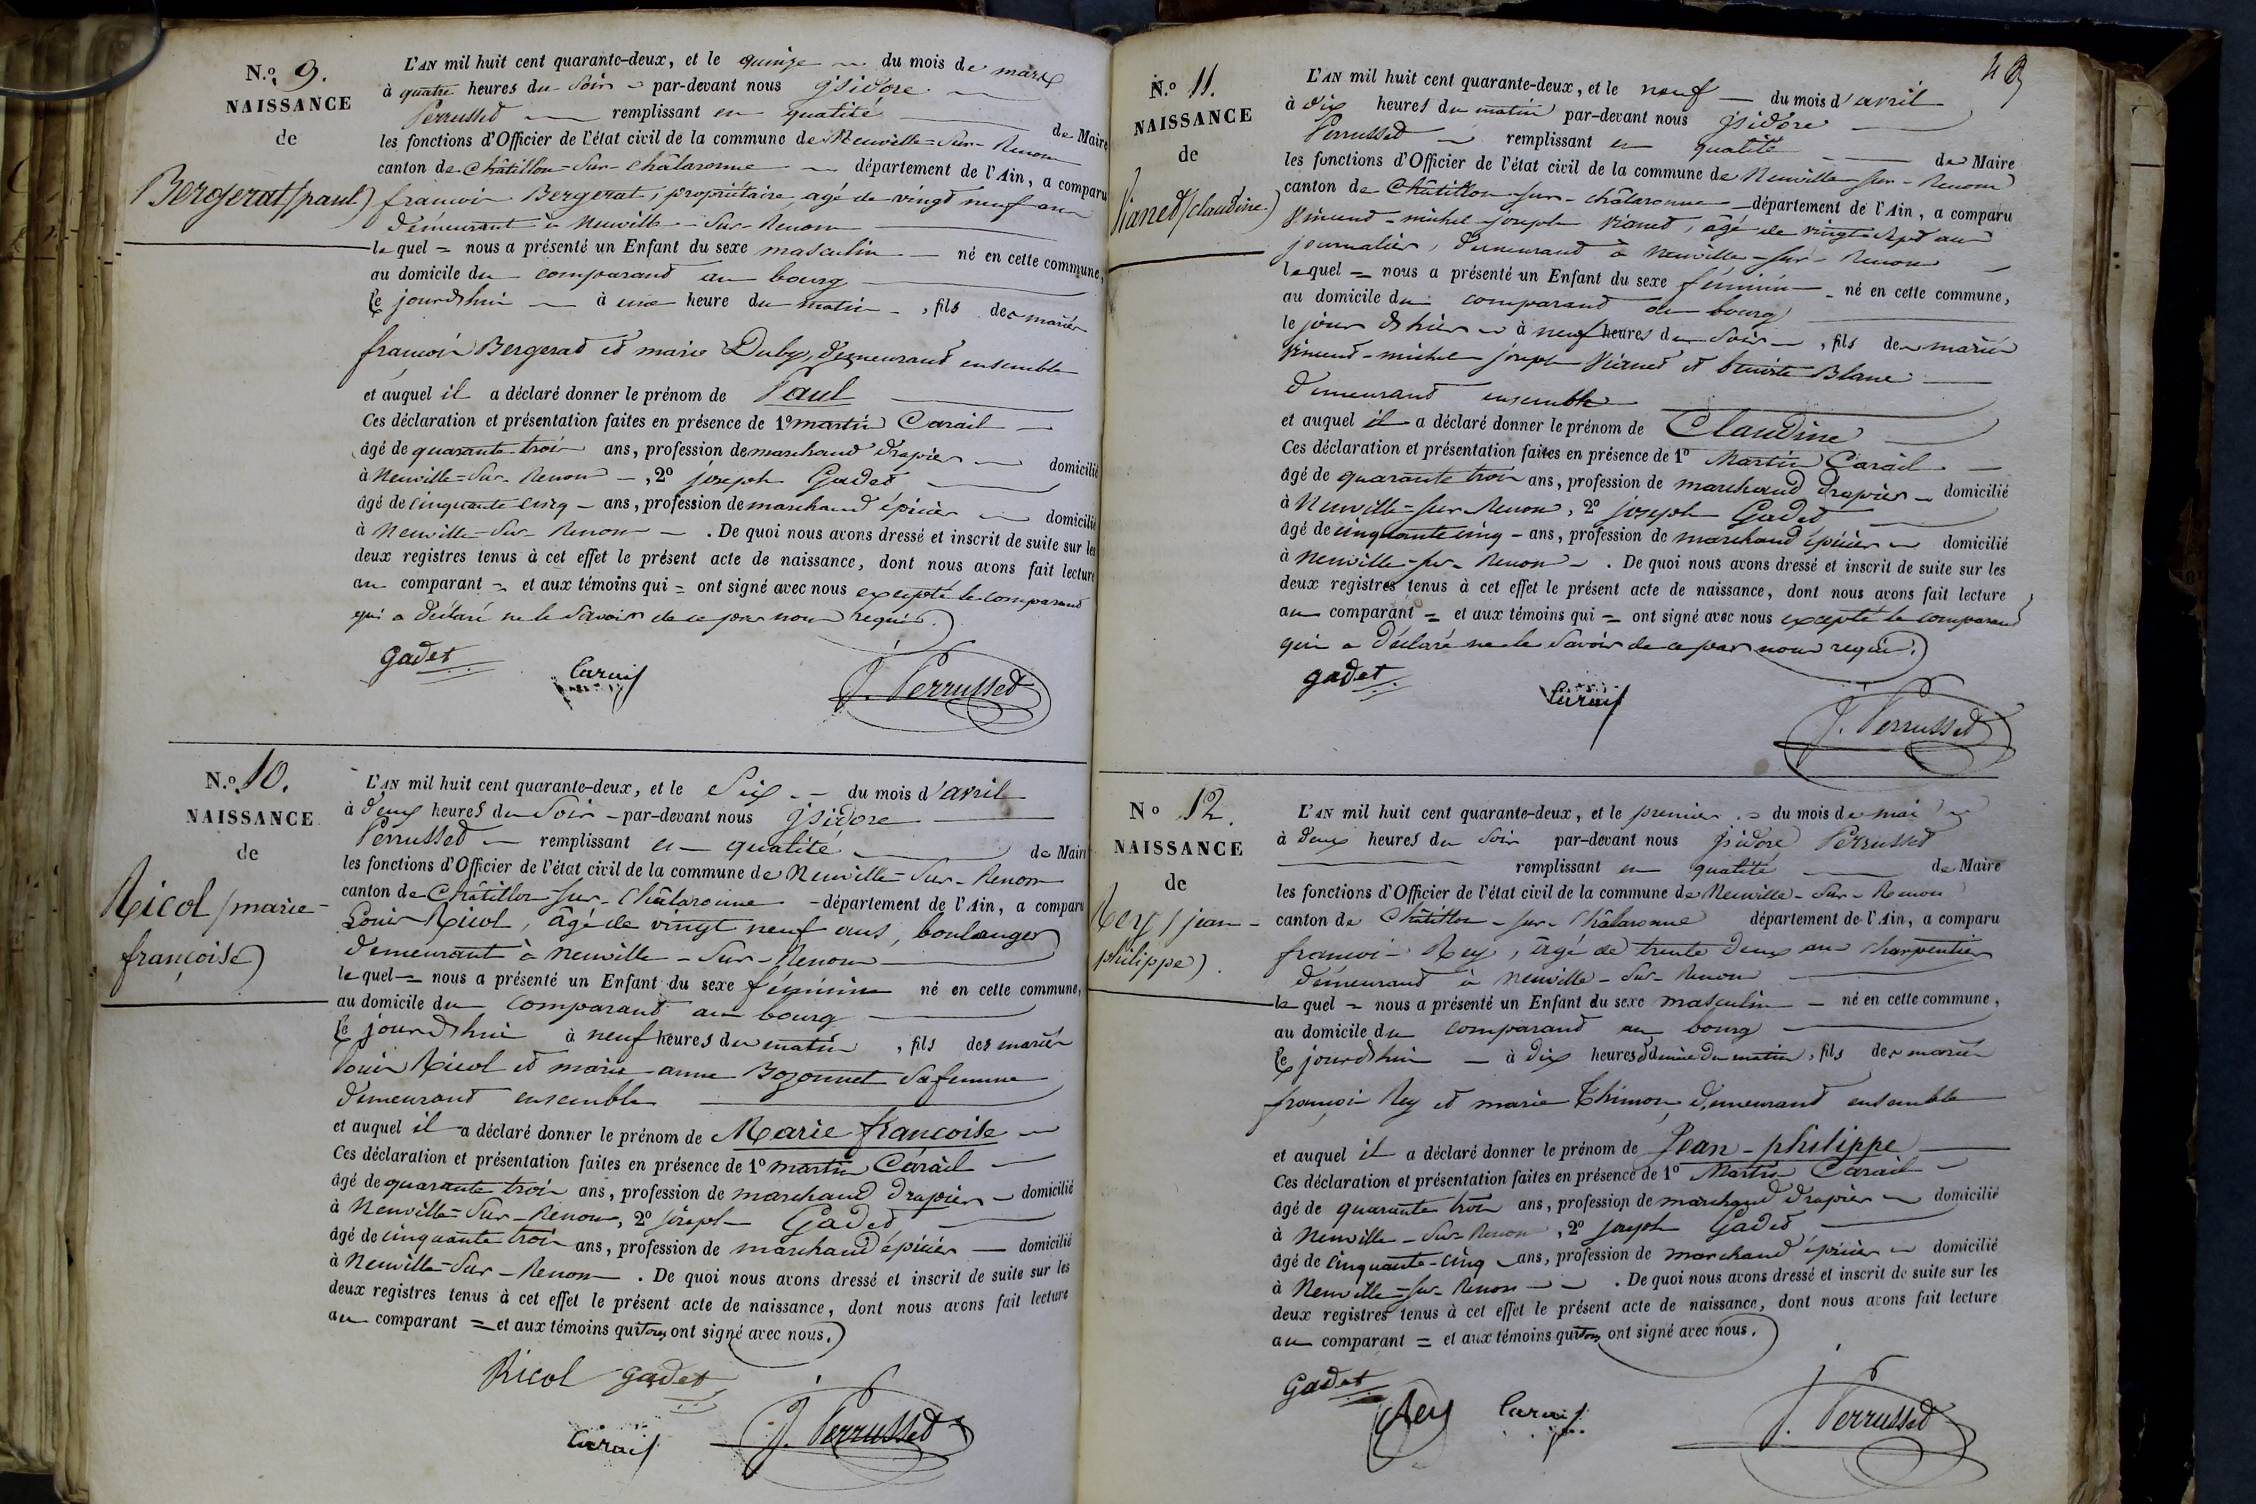 N.º 9.
NAISSANCE
de
Bergerat (paul)
L'AN mil huit cent quarante-deux, et le quinze du mois de mars
à quatre heures du soir par-devant nous jsidore
Perrusset remplissant en qualité de Maire
les fonctions d'Officier de l'état civil de la commune de Neuville-sur-Renom
canton de Châtillon-sur-châlaronne département de l'Ain, a comparu
françois Bergerat, propriétaire, agé de vingt neuf ans
demeurant à Neuville-sur-Renom
le quel = nous a présenté un Enfant du sexe masculin né en cette commune,
au domicile du comparant au bourg
Ce jourdhui à une heure du matin, fils des mariés
françois Bergerat et marie Duby, demeurant ensemble
et auquel il a déclaré donner le prénom de Paul
Ces déclaration et présentation faites en présence de 1º martin Carail
âgé de quarante trois ans, profession de marchand drapier domicilié
à Neuville-sur-Renom, 2º joseph Gadet
âgé de cinquante-cinq ans, profession de marchand épicier domicilié
à Neuville-sur-Renom. De quoi nous avons dressé et inscrit de suite sur les
deux registres tenus à cet effet le présent acte de naissance, dont nous avons fait lecture
au comparant = et aux témoins qui = ont signé avec nous excepté le comparant
qui a déclaré ne le savoir de ce par nous requis.
gadet
Carail
J. Perrusset
N.º 10.
NAISSANCE
de
Ricol (marie-
françoise)
L'AN mil huit cent quarante-deux, et le six du mois d'avril
à deux heures du soir par-devant nous jsidore
Perrusset remplissant en qualité de Maire
les fonctions d'Officier de l'état civil de la commune de Neuville-sur-Renom
canton de Châtillon-sur-Châlaronne département de l'Ain, a comparu
Louis Ricol, âgé de vingt neuf ans, boulanger
demeurant à neuville-sur-Renom
le quel = nous a présenté un Enfant du sexe féminin né en cette commune,
au domicile du comparant au bourg
Ce jourdhui à neuf heures du matin, fils des mariés
Louis Ricol et marie anne Bozonnet sa femme
demeurant ensemble
et auquel il a déclaré donner le prénom de Marie françoise
Ces déclaration et présentation faites en présence de 1º martin Carail
âgé de quarante trois ans, profession de marchand drapier domicilié
à Neuville-sur-Renom, 2º joseph Gadet
âgé de cinquante trois ans, profession de marchand épicier domicilié
à Neuville-sur-Renom. De quoi nous avons dressé et inscrit de suite sur les
deux registres tenus à cet effet le présent acte de naissance, dont nous avons fait lecture
au comparant = et aux témoins qui tous ont signé avec nous.
Ricol gadet
Carail
J. Perrusset
N.º 11.
NAISSANCE
de
Vianet (claudine)
L'AN mil huit cent quarante-deux, et le neuf du mois d'avril
à dix heures du matin par-devant nous jsidore
Perrusset remplissant en qualité de Maire
les fonctions d'Officier de l'état civil de la commune de Neuville-sur-Renom
canton de Châtillon-sur-châlaronne département de l'Ain, a comparu
Vincent-michel-joseph Vianet, âgé de vingt-sept ans
journalier, demeurant à Neuville-sur-Renom
le quel = nous a présenté un Enfant du sexe féminin né en cette commune,
au domicile du comparant au bourg
le jour d'hier à neuf heures du soir, fils des mariés
Vincent-michel joseph Vianet et benoite Blanc
demeurant ensemble
et auquel il a déclaré donner le prénom de Claudine
Ces déclaration et présentation faites en présence de 1º Martin Carail
âgé de quarante trois ans, profession de marchand drapier domicilié
à Neuville-sur-Renom, 2º joseph Gadet
âgé de cinquante cinq ans, profession de marchand épicier domicilié
à Neuville-sur-Renom. De quoi nous avons dressé et inscrit de suite sur les
deux registres tenus à cet effet le présent acte de naissance, dont nous avons fait lecture
au comparant = et aux témoins qui = ont signé avec nous excepté le comparant
qui a déclaré ne le savoir de ce par nous requis.
gadet
Carail
J. Perrusset
Nº 12.
NAISSANCE
de
Rey (jean-
philippe)
L'AN mil huit cent quarante-deux, et le premier du mois de mai
à deux heures du soir par-devant nous jsidore Perrusset
remplissant en qualité de Maire
les fonctions d'Officier de l'état civil de la commune de Neuville-sur-Renom
canton de Châtillon-sur-Châlaronne département de l'Ain, a comparu
françois Rey, âgé de trente deux ans charpentier
demeurant à neuville-sur-Renom
le quel = nous a présenté un Enfant du sexe masculin né en cette commune,
au domicile du comparant au bourg
Ce jourdhui à dix heures & demie du matin, fils des mariés
françois Rey et marie Thimon, demeurant ensemble
et auquel il a déclaré donner le prénom de Jean-philippe
Ces déclaration et présentation faites en présence de 1º Martin Carail
âgé de quarante trois ans, profession de marchand drapier domicilié
à Neuville-sur-Renom, 2º joseph Gadet
âgé de cinquante-cinq ans, profession de marchand épicier domicilié
à Neuville-sur-Renom. De quoi nous avons dressé et inscrit de suite sur les
deux registres tenus à cet effet le présent acte de naissance, dont nous avons fait lecture
au comparant = et aux témoins qui tous ont signé avec nous.
Gadet
Rey Carail
J. Perrusset